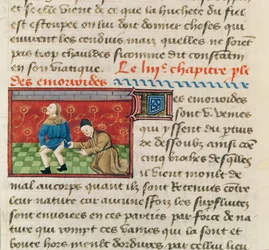 et se elle vient de ce que la luchete du fie
est estoupee on lui doit donner choses qui
euurent les conduis mais quelles ne soient
pas trop chauldes sicomme dit constantin
en son viatique. Le chapitre ple
des emoroides
Les emoroides
sont .v. veines
qui yssent du plus
de dessoubz ainsi comme
cinq broches desqlles
il vient moult de
mal au corps quant ilz sont retenues contre
leur nature car aucunes foiz les supfluitez
sont enuoiees en ces parties par force de na
ture qui rompt ces vaines qui la sont et
boute hors moult dordures par celluy lieu